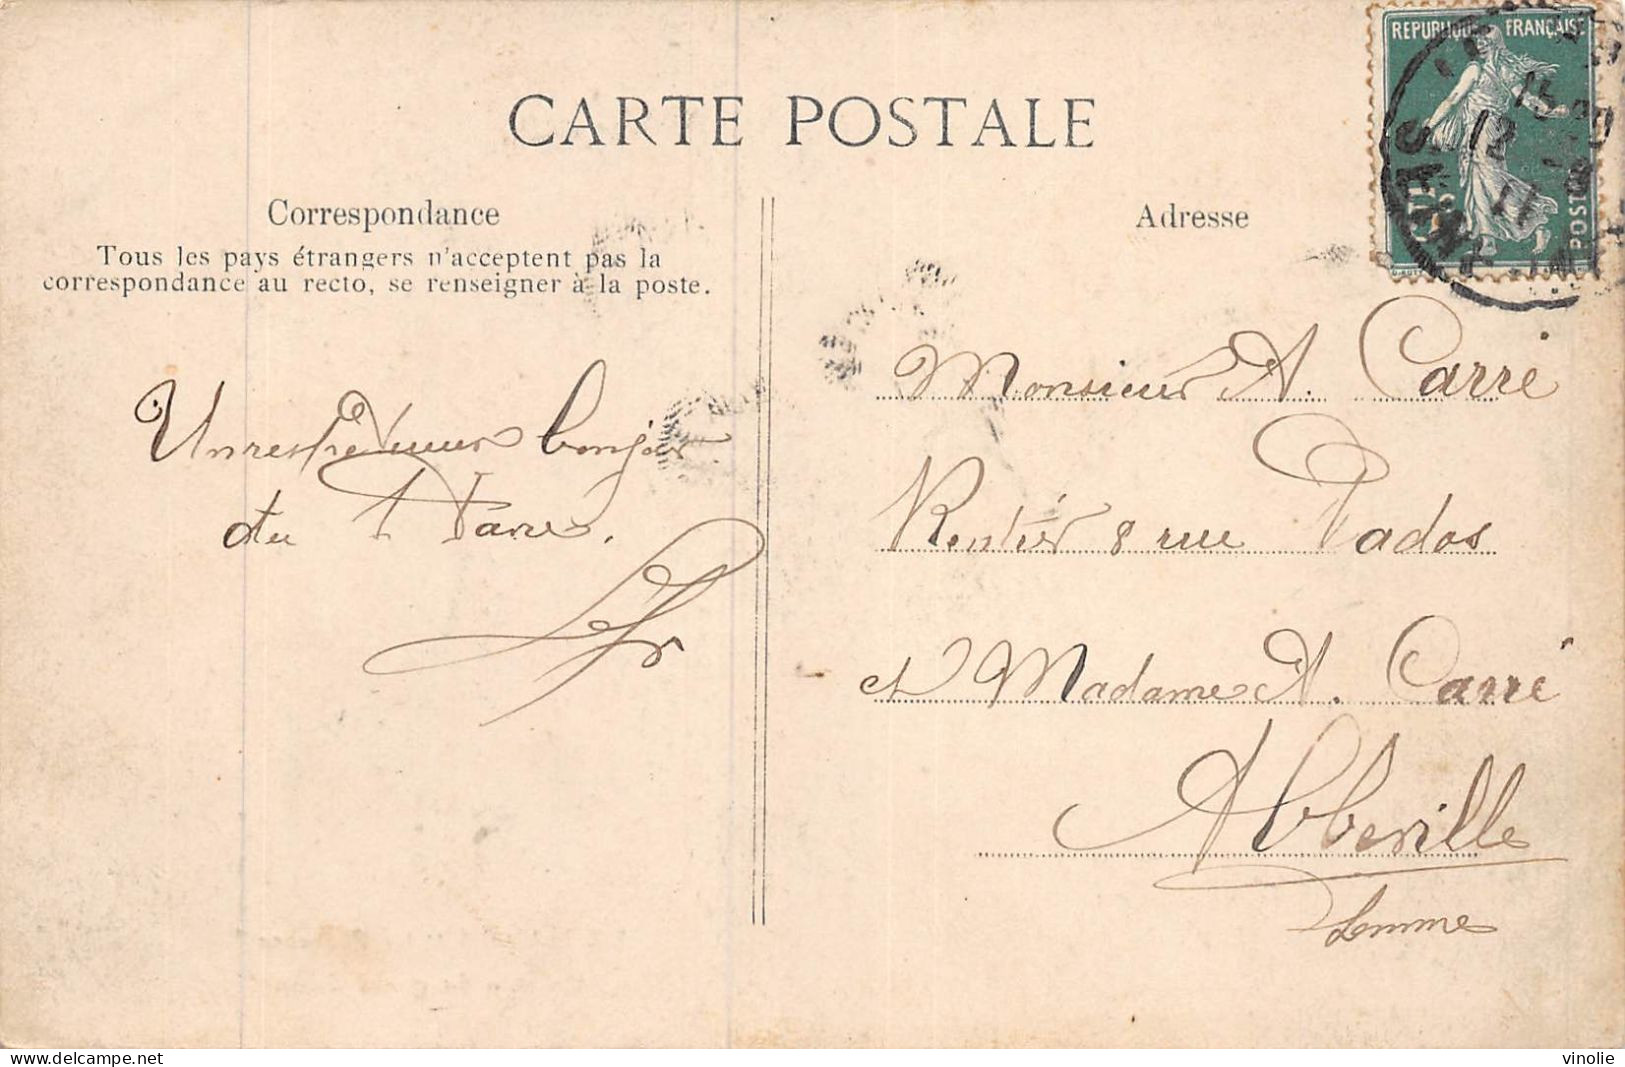 REPUBLIQUE FRANÇAISE
POSTES
CARTE POSTALE
Correspondance
Adresse
Tous les pays étrangers n'acceptent pas la
correspondance au recto, se renseigner à la poste.
Un respectueux bonjour
du
Monsieur A. Carré
Rentier 8 rue Pados
et Madame A. Carré
Abbeville
Somme
vinolie